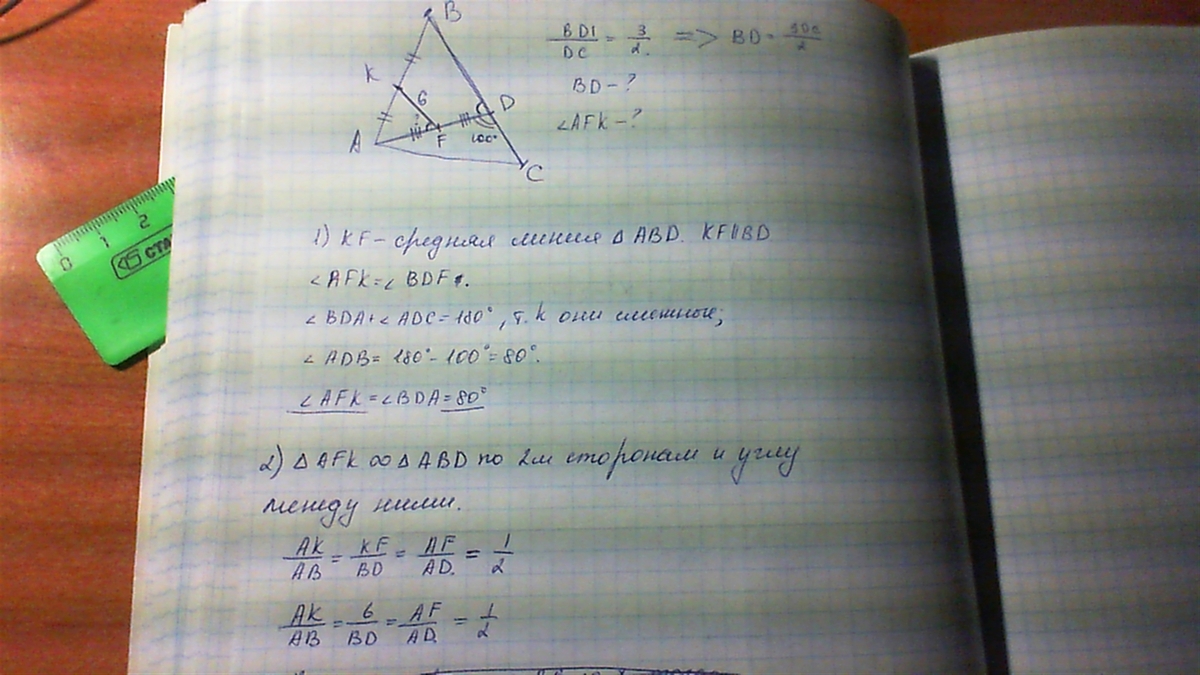 B
BD1/DC = 3/2. => BD = 3DC/2
K
6
D
BD - ?
A
F
100°
∠AFK - ?
C
0 1 2
СТА
1) KF - средняя линия △ ABD. KF∥BD
∠AFK = ∠BDF.
∠BDA + ∠ADC = 180°, т.к они смежные;
∠ADB = 180° - 100° = 80°.
∠AFK = ∠BDA = 80°
2) △ AFK ∞ △ ABD по 2м сторонам и углу
между ними.
AK/AB = KF/BD = AF/AD. = 1/2
AK/AB = 6/BD = AF/AD = 1/2